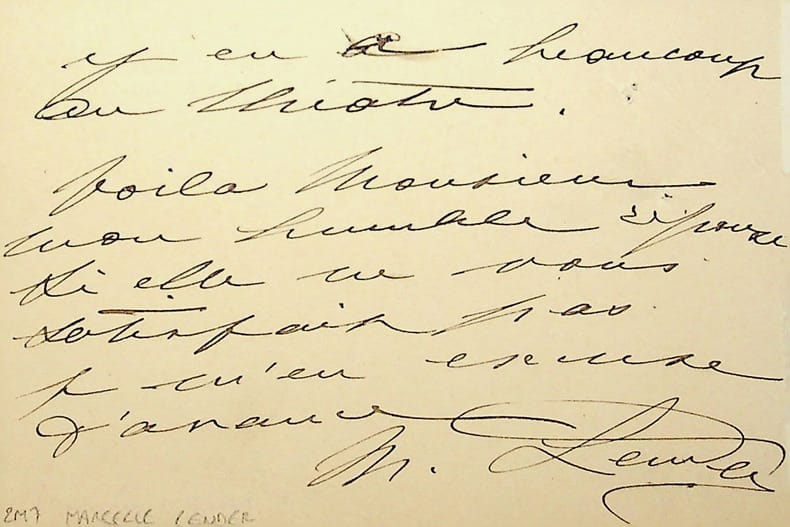 y en a beaucoup
au théâtre.
Voila Monsieur
mon humble réponse
Si elle ne vous
satisfait pas
je m'en excuse
d'avance
M. Lender
2M7 MARCELLE LENDER